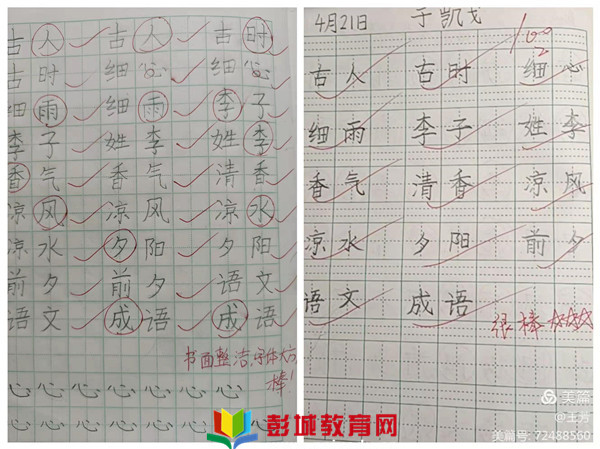 古人 古人 古时
古时 细心 细心
细雨 细雨 李子
李子 姓李 姓李
香气 香气 清香
凉风 凉风 凉水
凉水 夕阳 夕阳
前夕 前夕 语文
语文 成语 成语
书面整洁,字体大方
棒!
心心心心心心心
心心心心心心心
4月21日 于凯戈
100
2
古人 古时 细心
细雨 李子 姓李
香气 清香 凉风
凉水 夕阳 前夕
语文 成语
很棒
彭城教育网
美篇
@王芳
美篇号: 72488560